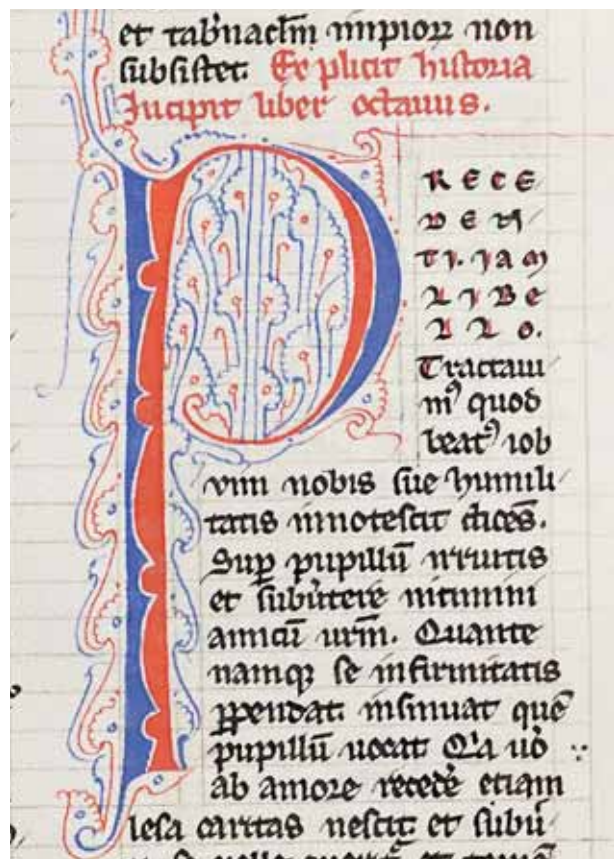 et tab̉nacl̄m impioꝝ non
subsistet. Ex plicit historia
Incipit liber octauus.
P RECE
DEN
TI. IAM
LIBE
LLO.
Tractaui
mꝰ quod
beatꝰ iob
vim nobis sue humili
tatis innotescit dicēs.
Sup̱ pupillū irruitis
et sub̉tere nitimini
amicū ur̄m. Quante
namqꝫ se infirmitatis
ꝓpendat insinuat quē
pupillū uocat Q̓a uō
ab amore recedē etiam
lesa caritas nescit et sub̉